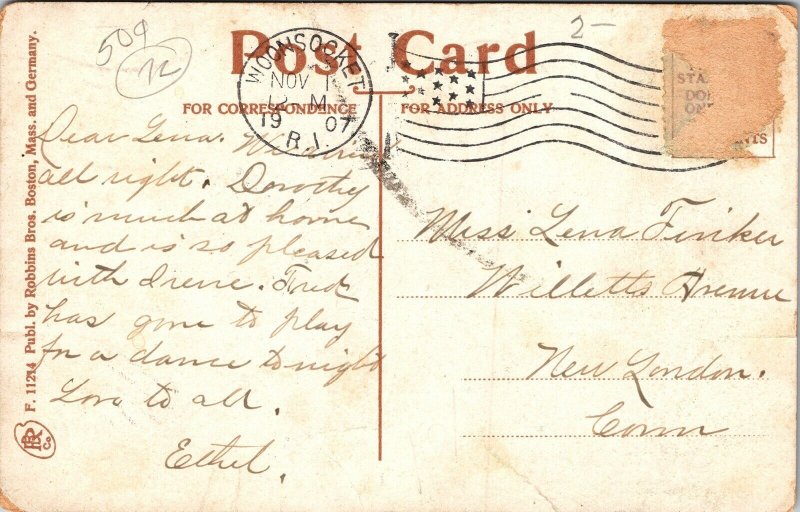 509
12
2-
Post Card
FOR CORRESPONDENCE
FOR ADDRESS ONLY
WOONSOCKET
NOV 1
12 M
1907
R.I.
STA
DO
ON
NTS
F. 11214 Publ. by Robbins Bros. Boston, Mass. and Germany.
Co
Dear Lena.
all right. Dorothy
is much at home
and is so pleased
with Irene. Fred
has gone to play
for a dance tonight
Love to all.
Ethel.
Miss Lena Finker
Willetts Avenue
New London.
Conn